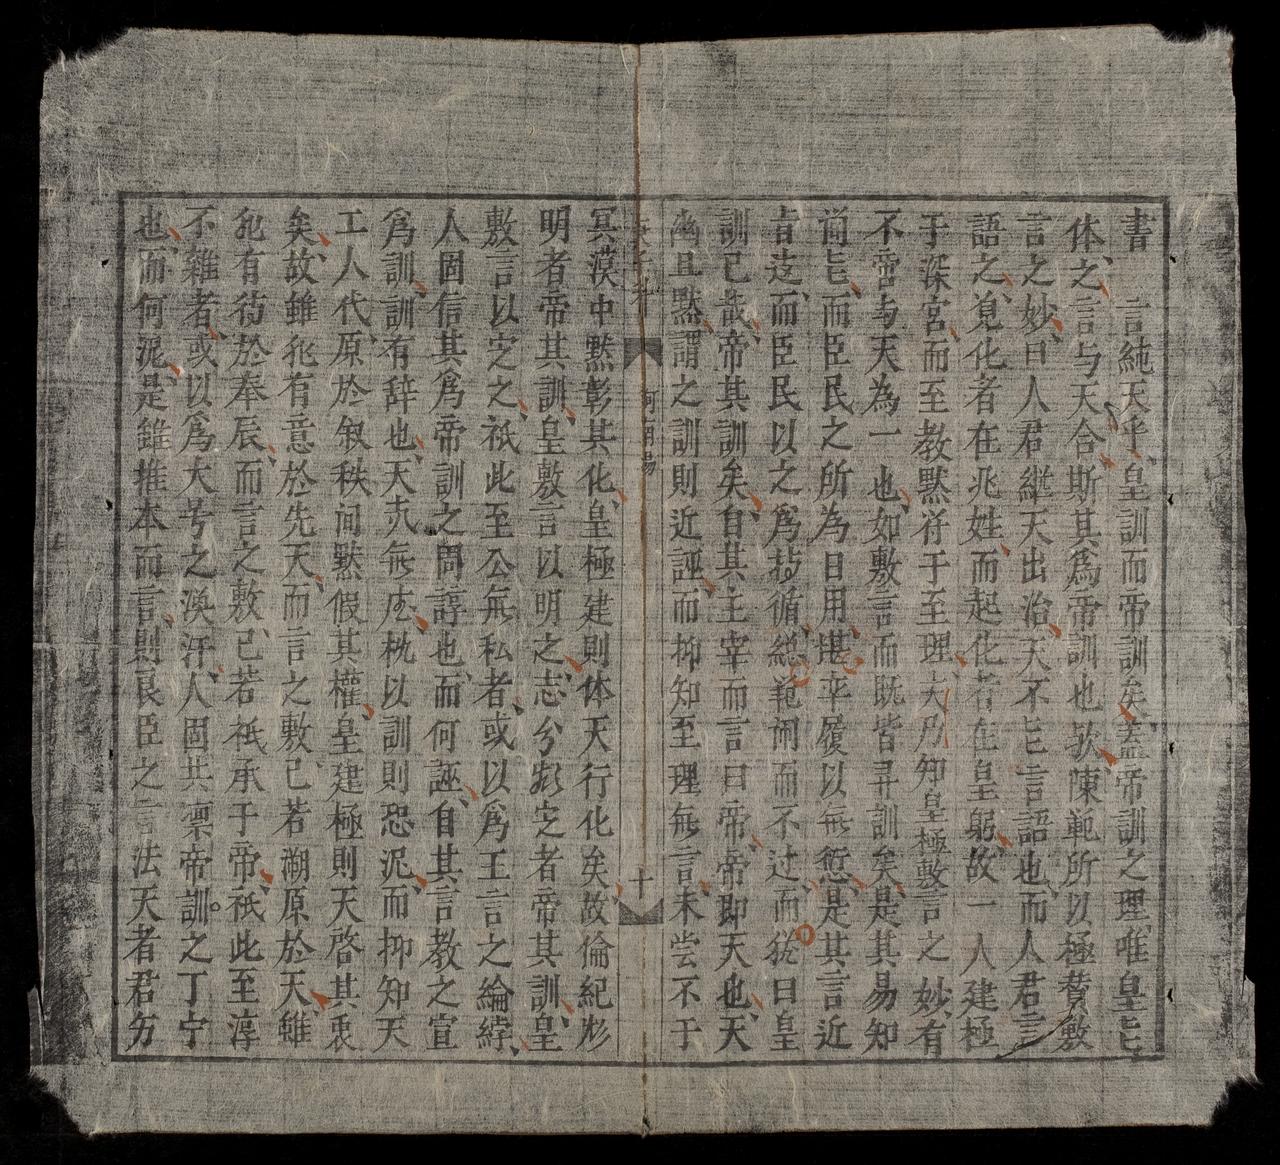 書　言純天乎皇訓而帝訓矣盖帝訓之理唯皇㫖
体之言与天合斯其爲帝訓也歟陳範所以極賛敷
言之妙曰人君継天出治天不㠯言語也而人君言
語之見化者在兆姓而起化若在皇躬故一人建極
于深宮而至教黙符于至理夫乃知皇極敷言之妙有
不啻与天為一也如敷言而既皆彛訓矣是其易知
尚㠯而臣民之所為日用堪率履以無愆是其言近
㫖逺而臣民以之爲持循縂範闲而不过而犹曰皇
訓已哉帝其訓矣自其主宰而言曰帝帝即天也天
幽且黙謂之訓則近誣而抑知至理無言未尝不于
十
冥漠中黙彰其化皇極建則体天行化矣故倫紀彰
明者帝其訓皇敷言以明之志分㝎者帝其訓皇
敷言以㝎之祇此至公無私者或以爲王言之綸綍
人固信其爲帝訓之問諄也而何誣自其言教之宣
爲訓訓有辞也天𠀋無庅枕以訓則恐泥而抑知天
工人代原於叙秩间黙假其權皇建極則天啓其衷
矣故雖非有意於先天而言之敷已若溯原於天雖
非有待於奉辰而言之敷已若祇承于帝祇此至淳
不雜者或以爲大号之渙汗人固共凛帝訓之丁宁
也而何泥是雖推本而言則良臣之言法天者君勿